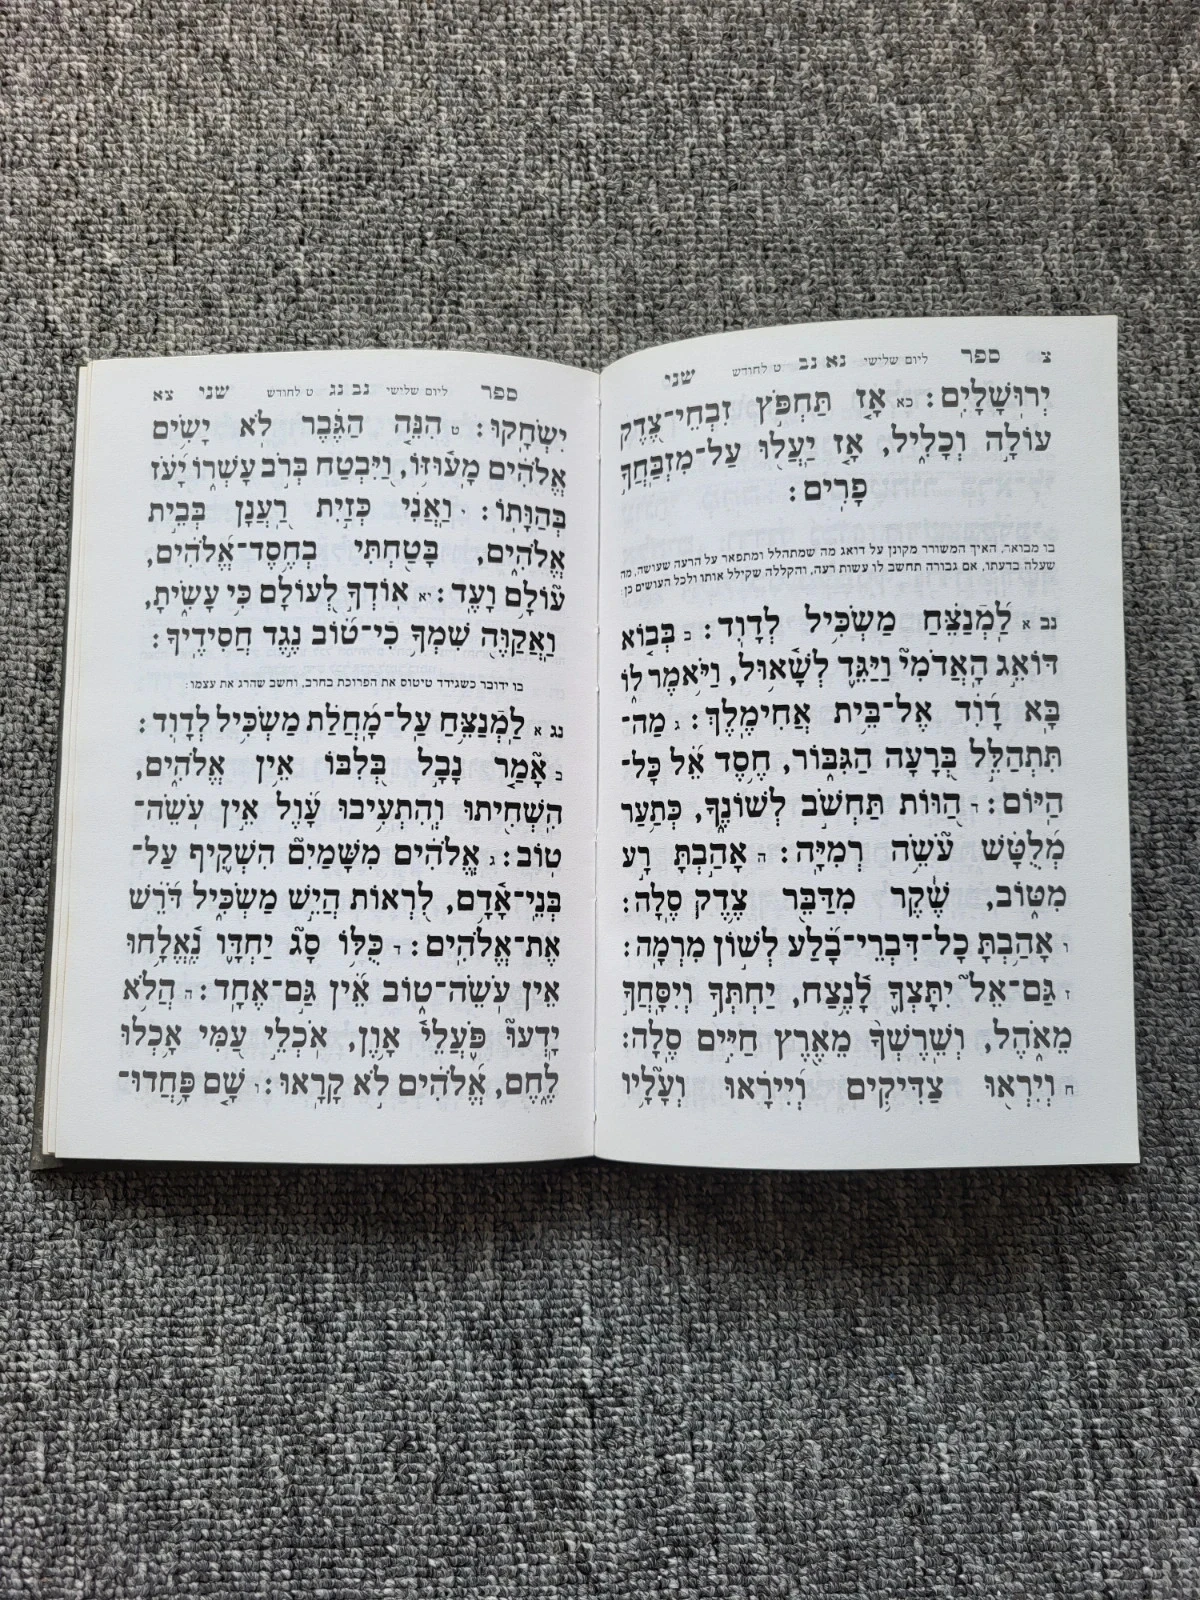 צ ספר ליום שלישי נא נב ט לחודש שני
יְרוּשָׁלָיִם: כא אָז תַּחְפֹּץ זִבְחֵי־צֶדֶק
עוֹלָה וְכָלִיל, אָז יַעֲלוּ עַל־מִזְבַּחֲךָ
פָרִים:
בו מבואר, האיך המשורר מקונן על דואג מה שמתהלל ומתפאר על הרעה שעושה, מה
שעלה בדעתו, אם גבורה תחשב לו עשות רעה, והקללה שקילל אותו ולכל העושים כן:
נב א לַמְנַצֵּחַ מַשְׂכִּיל לְדָוִד: ב בְּבוֹא
דּוֹאֵג הָאֲדֹמִי וַיַּגֵּד לְשָׁאוּל, וַיֹּאמֶר לוֹ
בָּא דָוִד אֶל־בֵּית אֲחִימֶלֶךְ: ג מַה־
תִּתְהַלֵּל בְּרָעָה הַגִּבּוֹר, חֶסֶד אֵל כָּל־
הַיּוֹם: ד הַוּוֹת תַּחְשֹׁב לְשׁוֹנֶךָ, כְּתַעַר
מְלֻטָּשׁ עֹשֵׂה רְמִיָּה: ה אָהַבְתָּ רָע
מִטּוֹב, שֶׁקֶר מִדַּבֵּר צֶדֶק סֶלָה:
ו אָהַבְתָּ כָל־דִּבְרֵי־בָלַע לְשׁוֹן מִרְמָה:
ז גַּם־אֵל יִתָּצְךָ לָנֶצַח, יַחְתְּךָ וְיִסָּחֲךָ
מֵאֹהֶל, וְשֵׁרֶשְׁךָ מֵאֶרֶץ חַיִּים סֶלָה:
ח וְיִרְאוּ צַדִּיקִים וְיִירָאוּ וְעָלָיו
ספר ליום שלישי נב נג ט לחודש שני צא
יִשְׂחָקוּ: ט הִנֵּה הַגֶּבֶר לֹא יָשִׂים
אֱלֹהִים מָעוּזּוֹ, וַיִּבְטַח בְּרֹב עָשְׁרוֹ יָעֹז
בְּהַוָּתוֹ: י וַאֲנִי כְּזַיִת רַעֲנָן בְּבֵית
אֱלֹהִים, בָּטַחְתִּי בְחֶסֶד־אֱלֹהִים,
עוֹלָם וָעֶד: יא אוֹדְךָ לְעוֹלָם כִּי עָשִׂיתָ,
וַאֲקַוֶּה שִׁמְךָ כִי־טוֹב נֶגֶד חֲסִידֶיךָ:
בו ידובר כשגידד טיטוס את הפרוכת בחרב, וחשב שהרג את עצמו:
נג א לַמְנַצֵּחַ עַל־מָחֲלַת מַשְׂכִּיל לְדָוִד:
ב אָמַר נָבָל בְּלִבּוֹ אֵין אֱלֹהִים,
הִשְׁחִיתוּ וְהִתְעִיבוּ עָוֶל אֵין עֹשֵׂה־
טוֹב: ג אֱלֹהִים מִשָּׁמַיִם הִשְׁקִיף עַל־
בְּנֵי־אָדָם, לִרְאוֹת הֲיֵשׁ מַשְׂכִּיל דֹּרֵשׁ
אֶת־אֱלֹהִים: ד כֻּלּוֹ סָג יַחְדָּו נֶאֱלָחוּ
אֵין עֹשֵׂה־טוֹב אֵין גַּם־אֶחָד: ה הֲלֹא
יָדְעוּ פֹּעֲלֵי אָוֶן, אֹכְלֵי עַמִּי אָכְלוּ
לֶחֶם, אֱלֹהִים לֹא קָרָאוּ: ו שָׁם פָּחֲדוּ־